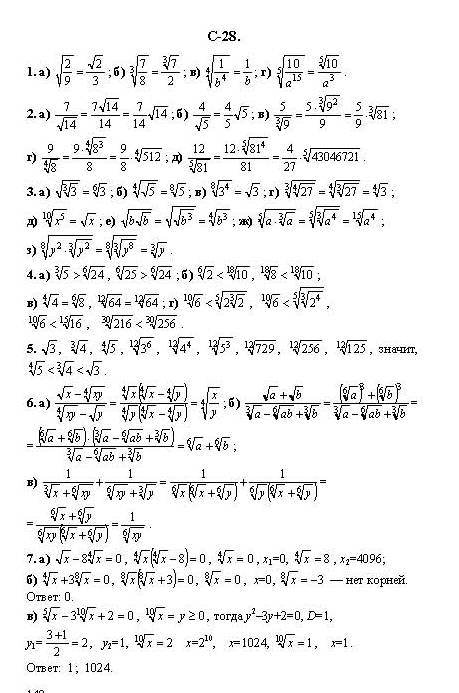 С-28.
1. а) √(2/9) = √2/3 ; б) ∛(7/8) = ∛7/2 ; в) ⁴√(1/b⁴) = 1/b ; г) ⁵√(10/a¹⁵) = ⁵√10/a³ .
2. а) 7/√14 = 7√14/14 = 7/14 √14 ; б) 4/√5 = 4/5 √5 ; в) 5/∛9 = 5·∛9²/9 = 5/9 · ∛81 ;
г) 9/⁴√8 = 9·⁴√8³/8 = 9/8 · ⁴√512 ; д) 12/⁵√81 = 12·⁵√81⁴/81 = 4/27 · ⁵√43046721 .
3. а) √∛3 = ⁶√3 ; б) ⁴√√5 = ⁸√5 ; в) ⁸√3⁴ = √3 ; г) ∛⁴√27 = ⁴√∛27 = ⁴√3 ;
д) ¹⁰√x⁵ = √x ; е) √(b√b) = √√b³ = ⁴√b³ ; ж) ⁵√(a·∛a) = ⁵√∛a⁴ = ¹⁵√a⁴ ;
з) ⁸√(y²·∛y²) = ⁸√∛y⁸ = ∛y .
4. а) ∛5 > ⁶√24 , ⁶√25 > ⁶√24 ; б) ⁶√2 < ¹⁸√10 , ¹⁸√8 < ¹⁸√10 ;
в) ⁴√4 = ⁶√8 , ¹²√64 = ¹²√64 ; г) ¹⁰√6 < ⁵√(2∛2) , ¹⁰√6 < ⁵√∛2⁴ ,
¹⁰√6 < ¹⁵√16 , ³⁰√216 < ³⁰√256 .
5. √3 , ∛4 , ⁴√5 , ¹²√3⁶ , ¹²√4⁴ , ¹²√5³ , ¹²√729 , ¹²√256 , ¹²√125 , значит,
⁴√5 < ∛4 < √3 .
6. а) (√x − ⁴√xy)/(⁴√xy − √y) = ⁴√x(⁴√x − ⁴√y)/(⁴√y(⁴√x − ⁴√y)) = ⁴√(x/y) ; б) (√a + √b)/(∛a − ⁶√ab + ∛b) = ((⁶√a)³ + (⁶√b)³)/(∛a − ⁶√ab + ∛b) =
= (⁶√a + ⁶√b)·(∛a − ⁶√ab + ∛b)/(∛a − ⁶√ab + ∛b) = ⁶√a + ⁶√b ;
в) 1/(∛x + ⁶√xy) + 1/(⁶√xy + ∛y) = 1/(⁶√x(⁶√x + ⁶√y)) + 1/(⁶√y(⁶√x + ⁶√y)) =
= (⁶√x + ⁶√y)/(⁶√xy(⁶√x + ⁶√y)) = 1/⁶√xy .
7. а) √x − 8⁴√x = 0 , ⁴√x(⁴√x − 8) = 0 , ⁴√x = 0 , x₁=0, ⁴√x = 8 , x₂=4096;
б) ⁴√x + 3⁸√x = 0 , ⁸√x(⁸√x + 3) = 0 , ⁸√x = 0 , x=0, ⁸√x = −3 — нет корней.
Ответ: 0.
в) ⁵√x − 3¹⁰√x + 2 = 0 , ¹⁰√x = y ≥ 0 , тогда y²–3y+2=0, D=1,
y₁= (3+1)/2 = 2 , y₂=1, ¹⁰√x = 2 x=2¹⁰, x=1024, ¹⁰√x = 1 , x=1.
Ответ: 1; 1024.